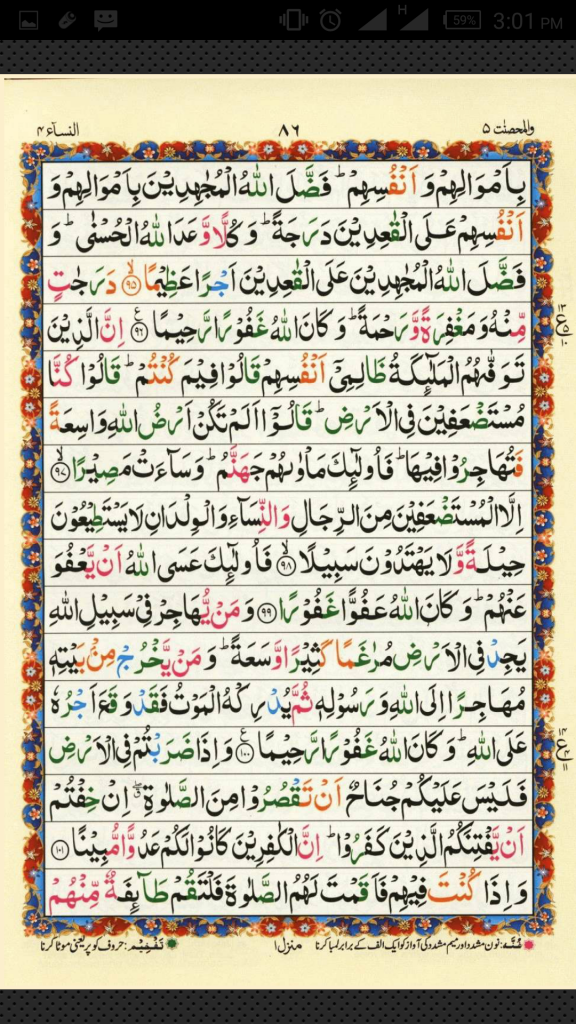 H 59% 3:01 PM
والمحصنٰت ٥ ٨٦ النسآء ٤
بِاَمْوَالِهِمْ وَ اَنْفُسِهِمْ ؕ فَضَّلَ اللّٰهُ الْمُجٰهِدِيْنَ بِاَمْوَالِهِمْ وَ
اَنْفُسِهِمْ عَلَى الْقٰعِدِيْنَ دَرَجَةً ؕ وَ كُلًّا وَّعَدَ اللّٰهُ الْحُسْنٰى ؕ وَ
فَضَّلَ اللّٰهُ الْمُجٰهِدِيْنَ عَلَى الْقٰعِدِيْنَ اَجْرًا عَظِيْمًا ۙ﴿٩٥﴾ دَرَجٰتٍ
مِّنْهُ وَ مَغْفِرَةً وَّرَحْمَةً ؕ وَ كَانَ اللّٰهُ غَفُوْرًا رَّحِيْمًا ﴿٩٦﴾ اِنَّ الَّذِيْنَ
تَوَفّٰىهُمُ الْمَلٰٓئِكَةُ ظَالِمِيْۤ اَنْفُسِهِمْ قَالُوْا فِيْمَ كُنْتُمْ ؕ قَالُوْا كُنَّا
مُسْتَضْعَفِيْنَ فِى الْاَرْضِ ؕ قَالُوْۤا اَلَمْ تَكُنْ اَرْضُ اللّٰهِ وَاسِعَةً
فَتُهَاجِرُوْا فِيْهَا ؕ فَاُولٰٓئِكَ مَاْوٰىهُمْ جَهَنَّمُ ؕ وَ سَآءَتْ مَصِيْرًا ۙ﴿٩٧﴾
اِلَّا الْمُسْتَضْعَفِيْنَ مِنَ الرِّجَالِ وَ النِّسَآءِ وَ الْوِلْدَانِ لَا يَسْتَطِيْعُوْنَ
حِيْلَةً وَّ لَا يَهْتَدُوْنَ سَبِيْلًا ۙ﴿٩٨﴾ فَاُولٰٓئِكَ عَسَى اللّٰهُ اَنْ يَّعْفُوَ
عَنْهُمْ ؕ وَ كَانَ اللّٰهُ عَفُوًّا غَفُوْرًا ﴿٩٩﴾ وَ مَنْ يُّهَاجِرْ فِيْ سَبِيْلِ اللّٰهِ
يَجِدْ فِى الْاَرْضِ مُرٰغَمًا كَثِيْرًا وَّسَعَةً ؕ وَ مَنْ يَّخْرُجْ مِنْۢ بَيْتِهٖ
مُهَاجِرًا اِلَى اللّٰهِ وَ رَسُوْلِهٖ ثُمَّ يُدْرِكْهُ الْمَوْتُ فَقَدْ وَقَعَ اَجْرُهٗ
عَلَى اللّٰهِ ؕ وَ كَانَ اللّٰهُ غَفُوْرًا رَّحِيْمًا ﴿١٠٠﴾ وَ اِذَا ضَرَبْتُمْ فِى الْاَرْضِ
فَلَيْسَ عَلَيْكُمْ جُنَاحٌ اَنْ تَقْصُرُوْا مِنَ الصَّلٰوةِ ۖ اِنْ خِفْتُمْ
اَنْ يَّفْتِنَكُمُ الَّذِيْنَ كَفَرُوْا ؕ اِنَّ الْكٰفِرِيْنَ كَانُوْا لَكُمْ عَدُوًّا مُّبِيْنًا ﴿١٠١﴾
وَ اِذَا كُنْتَ فِيْهِمْ فَاَقَمْتَ لَهُمُ الصَّلٰوةَ فَلْتَقُمْ طَآئِفَةٌ مِّنْهُمْ
ع ١٣ ٥ ١٠
ع ١٤ ١١
غُنَّه: نون مشدد اور میم مشدد کی آواز کو ایک الف کے برابر لمبا کرنا منزل ١ تَفْخِيْم: حروف کو پُر یعنی موٹا کرنا